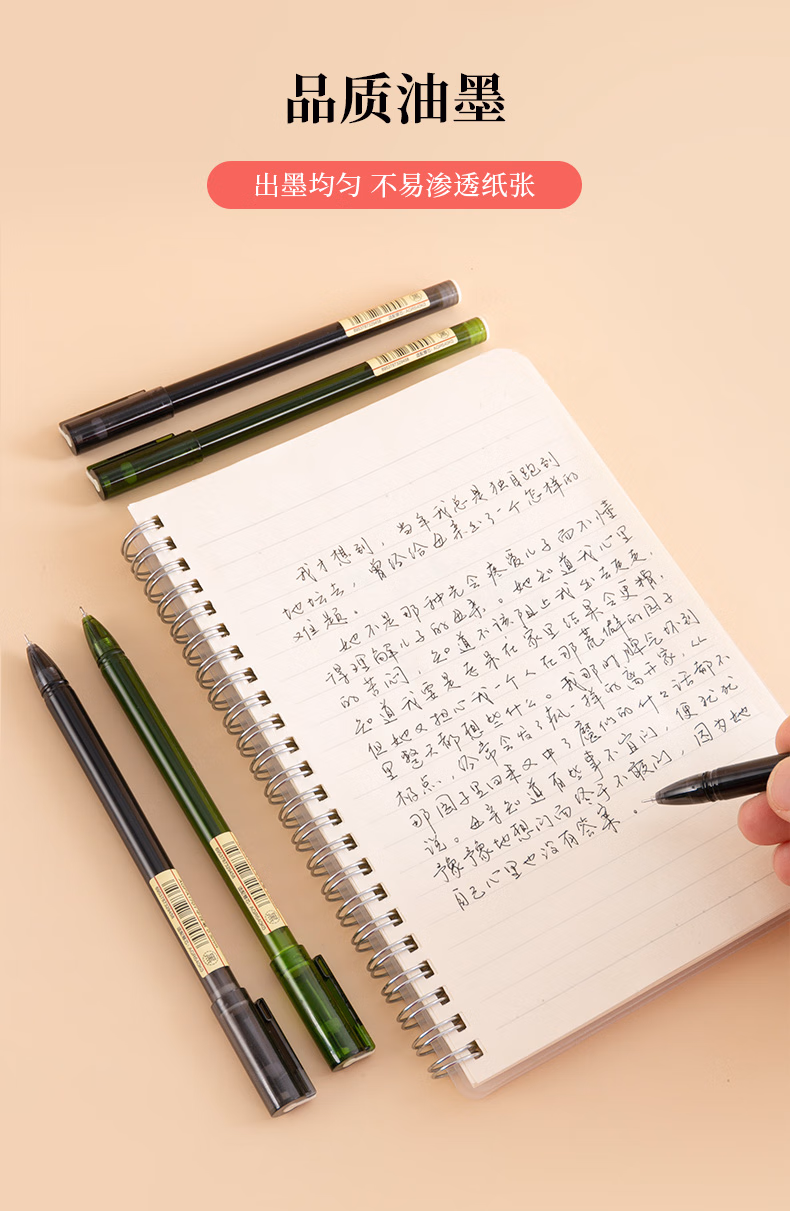 品质油墨
出墨均匀 不易渗透纸张
我才想到，当年我总是独自跑到
地坛去，曾经给母亲出了一个怎样的
难题。
她不是那种光会疼爱儿子而不懂
得理解儿子的母亲。她知道我心里
的苦闷，知道不该阻止我出去走走，
知道我要是老呆在家里结果会更糟，
但她又担心我一个人在那荒僻的园子
里整天都想些什么。我那时脾气坏到
极点，经常会发了疯一样的离开家，从
那园子里回来又中了魔似的什么话都不
说。母亲知道有些事不宜问，便犹犹
豫豫地想问而终于不敢问，因为她
自己心里也没有答案。